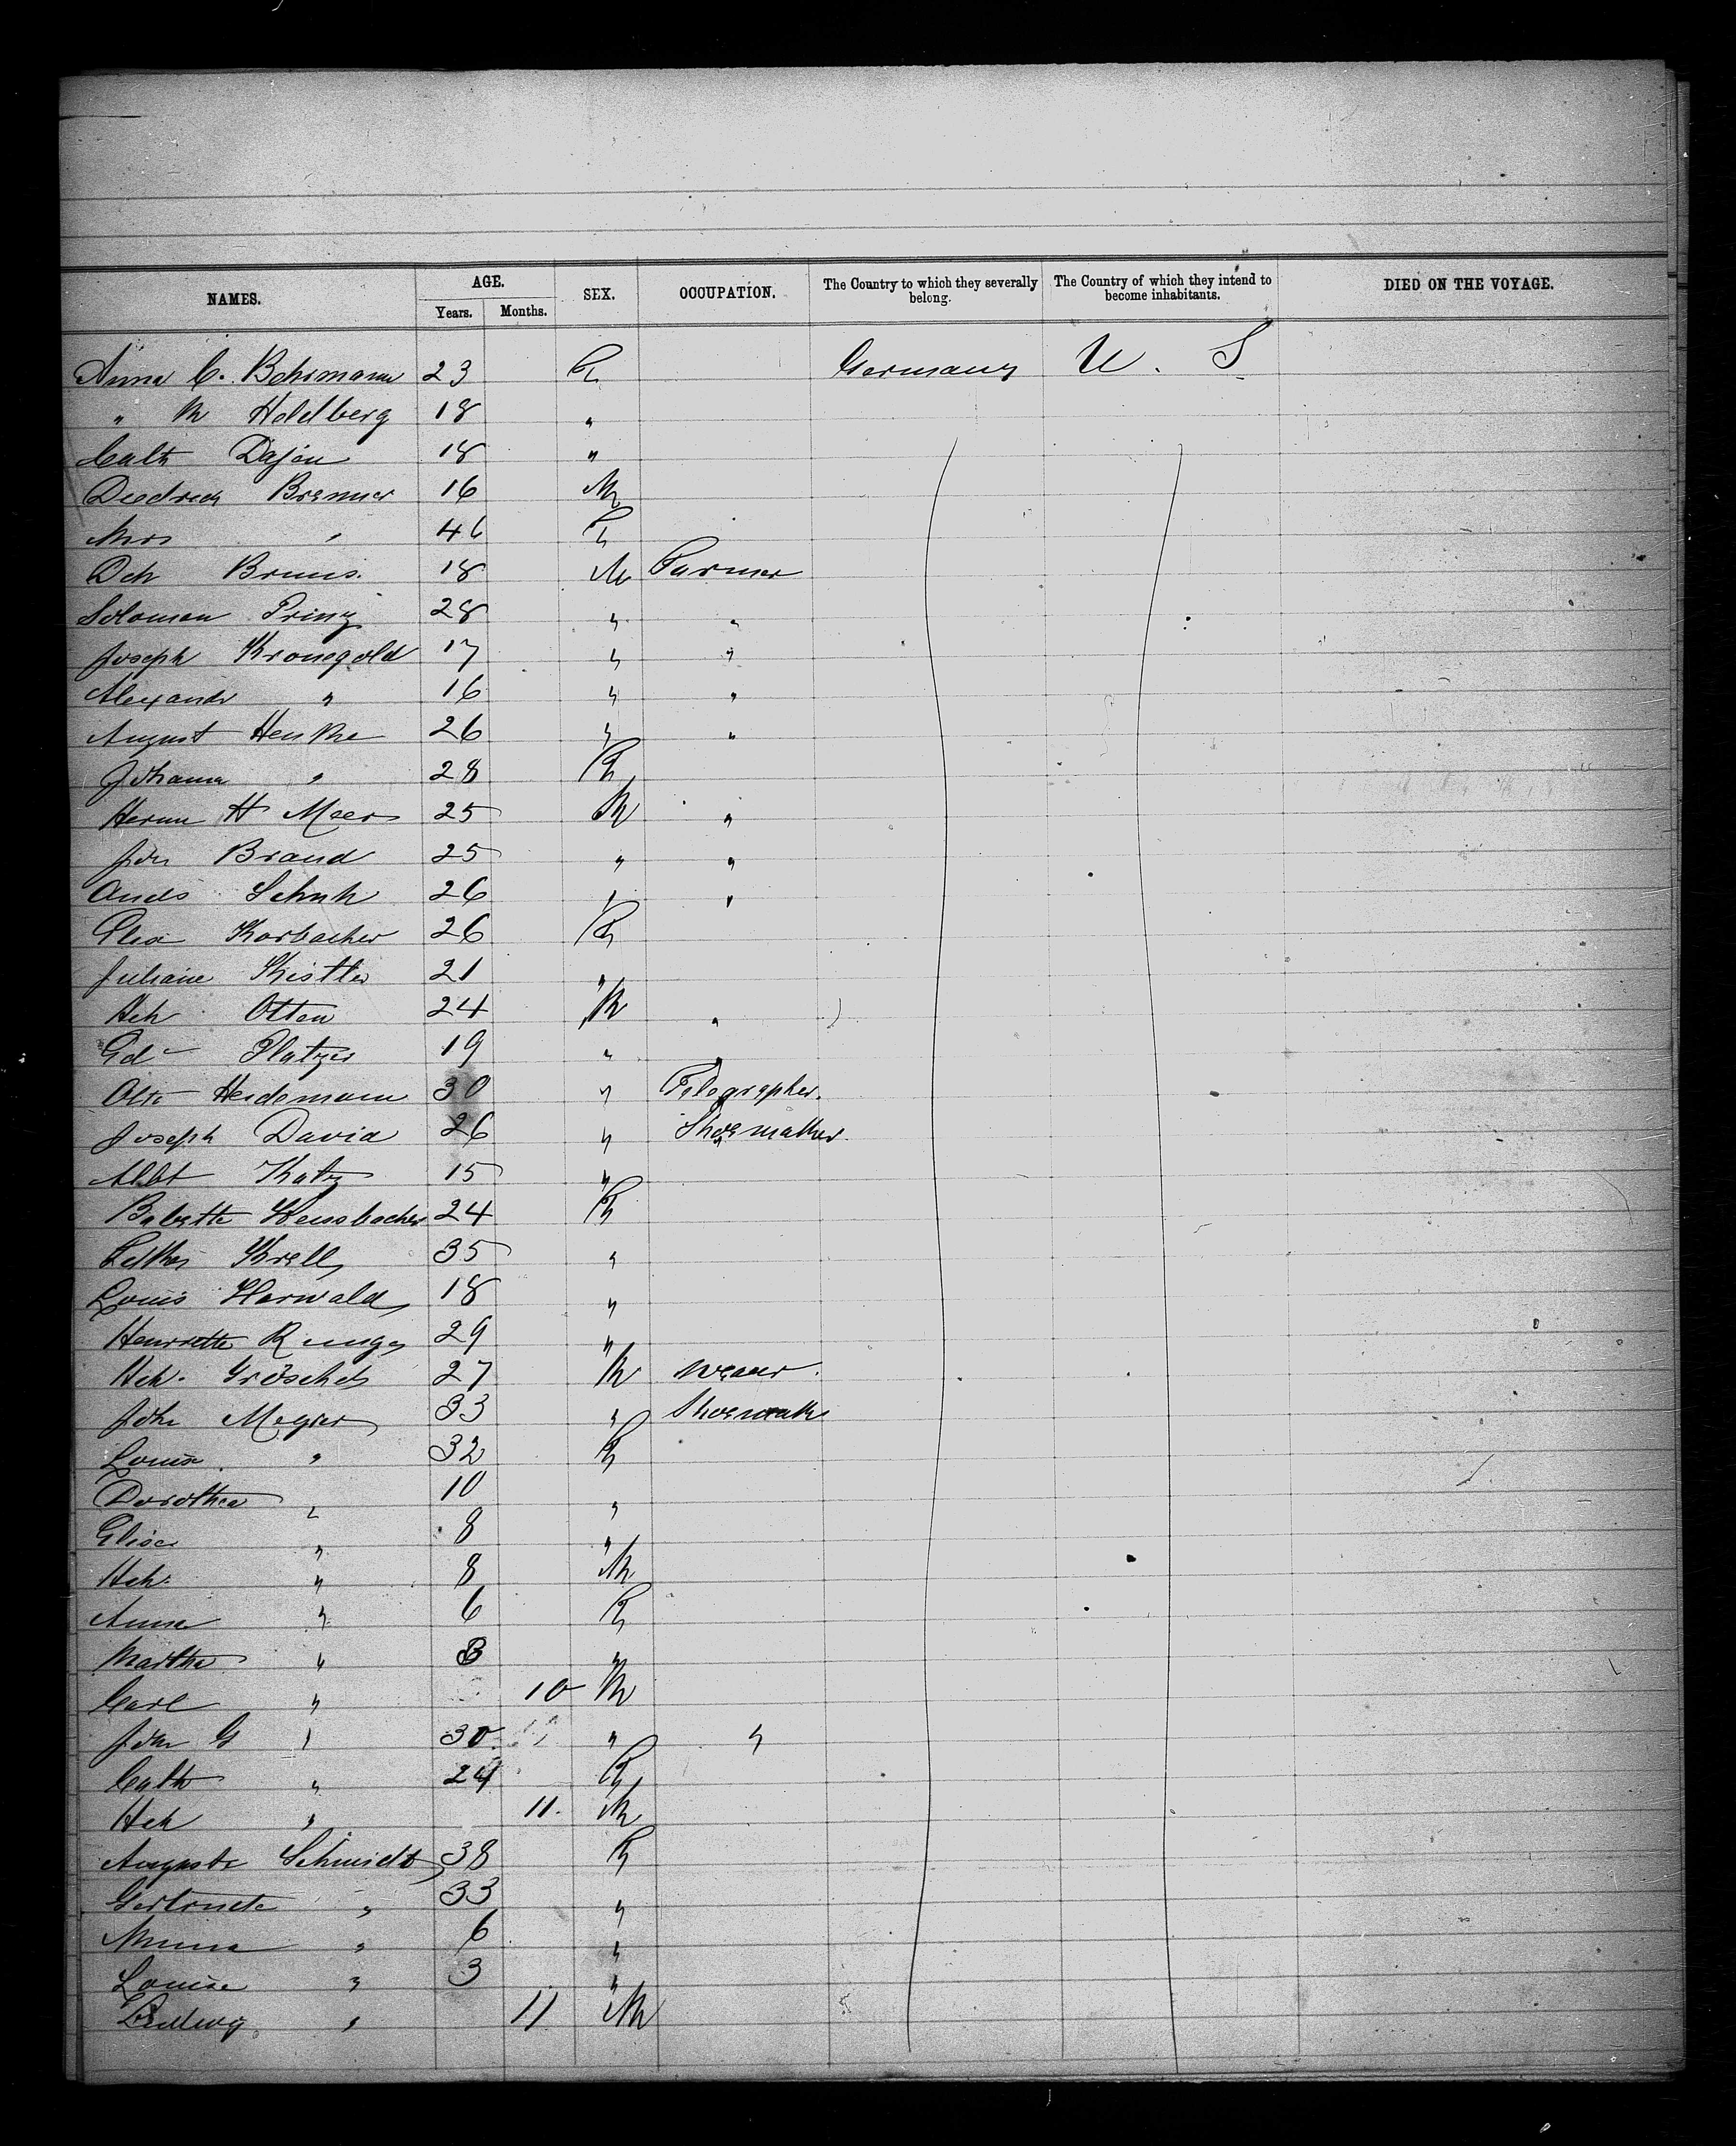 NAMES. AGE. SEX. OCCUPATION. The Country to which they severally belong. The Country of which they intend to become inhabitants. DIED ON THE VOYAGE.
Years. Months.
Anna C. Behrmann 23 F Germany U. S
" M Holdberg 18 "
Cath 18 "
Diedrich Bremer 16 M
Mrs " 46 F
Dch Bruns. 18 M Farmer
Solomon Prinz 28 " "
Joseph Kronegold 17 " "
Alexandr " 16 " "
August Henke 26 " "
Johanna " 28 F
Herm H Meer 25 M "
Joh Brand 25 " "
Ands Schuh 26 " "
Elisa Korbacher 26 F
Juliane Kistler 21 "
Hch Otten 24 M "
Ed Platzer 19 " "
Otto Heidemann 30 " Telegrapher.
Joseph David 26 " Shoemaker.
Albt Katz 15 "
Babette 24 F
Krell 35 "
Louis Harwald 18 "
Henriette Runge 29 "
Hch. Gröschel 27 M Weaver.
John Meyer 33 " Shoemak
Louise " 32 F
Dorothea " 10 "
Elise " 8 "
Hch. " 8 M
Anna " 6 F
Martha " 3 "
Carl " 10 M
John G " 30 " "
Cath " 24 F
Hch " 11. M
Auguste Schmidt 38 F
Gertrude " 33 "
Minna " 6 "
Louise " 3 "
Ludwig " 11 M